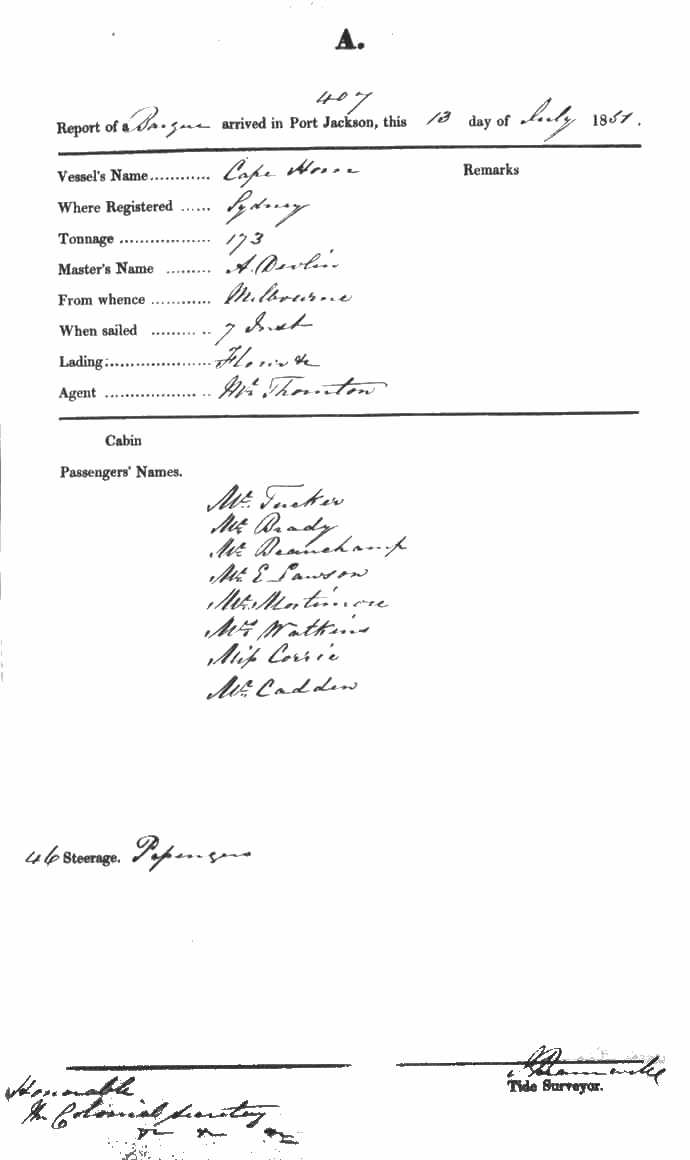 A.
407
Report of a Barque arrived in Port Jackson, this 13 day of July 1851.
Vessel's Name............ Cape Horn Remarks
Where Registered ...... Sydney
Tonnage .................. 173
Master's Name ......... A. Devlin
From whence ............ Melbourne
When sailed ......... .. 7 Inst
Lading:..................... Flour &c
Agent .................. .. Mr Thornton
Cabin
Passengers' Names.
Mr. Tucker
Mr Brady
Mr Beauchamp
Mr E Lawson
Mrs Mortimore
Mrs Watkins
Miss Corrie
Mr. Cadden
46 Steerage. Passengers
Tide Surveyor.
Honorable
The Colonial Secretary
&c &c &c